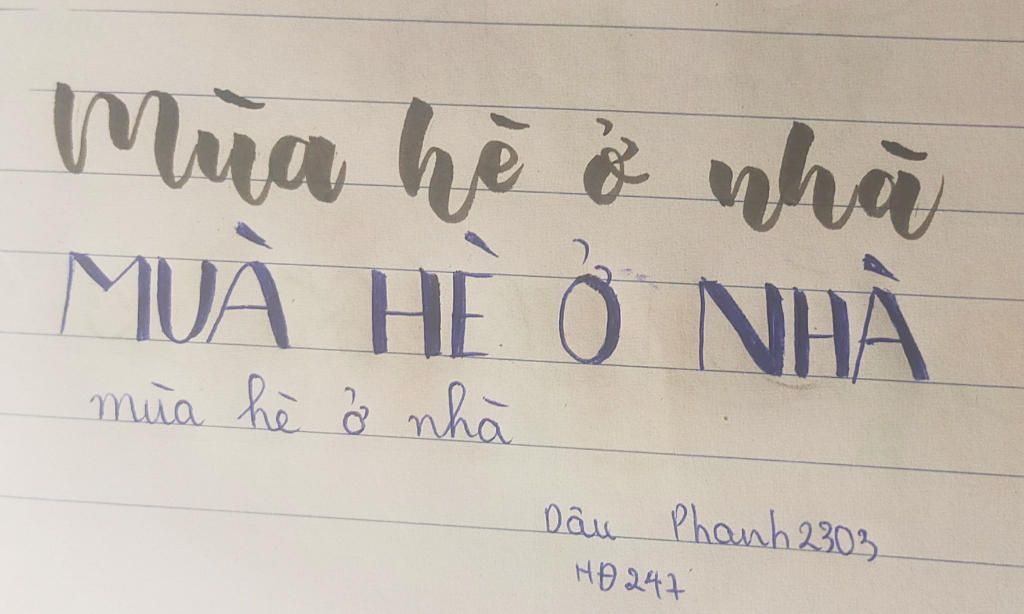 Mùa hè ở nhà
MUÀ HÈ Ở NHÀ
mùa hè ở nhà
Dâu Phanh2303
HĐ247